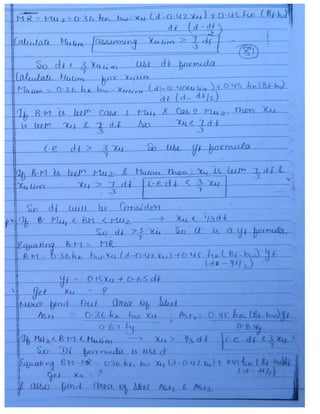 MR = Mu2 = 0.36 fck bw xu (d-0.42 xu) + 0.45 fck (Bf-bw)
df (d-df)
Calculate Mulim [assuming xulim > 7/3 df]
(81)
So df < 3/7 xulim use df formula
Calculate Mulim for xulim
Mulim = 0.36 fck bw xulim (d-0.42 xulim) + 0.45 fck (Bf-bw)
df (d - df/2)
If BM is betn case 1 Mu1 & Case Mu2 then xu
is betn xu & 7/3 df so xu < 7/3 df
i.e df > 3/7 xu So use yf formula
If B.M is betn Mu2 & Mulim then xu is betn 7/3 df &
xulim xu > 7/3 df [i.e df < 3/7 xu]
So df will be consider
If B Mu1 < BM < Mu2 → xu < 7/3 df
So df > 3/7 xu So it is a yf formula
Equating B.M = MR
B.M = 0.36 fck bw xu (d-0.42 xu) + 0.45 fck (Bf-bw) yf
yf = 0.15xu + 0.65 df
get xu = ?
Now find out area of steel
Ast1 = 0.36 fck bw xu , Ast2 = 0.45 fck (Bf-bw) yf
0.87 fy 0.87 fy
If Mu2 < B.M < Mulim → xu > 7/3 df [i.e df < 3/7 xu]
So Df formula is used
Equating B.M = MR = 0.36 fck bw xu (d-0.42 xu) + 0.45 fck (Bf-bw) df
get xu = ? (d - df/2)
& also find area of steel Ast1 & Ast2